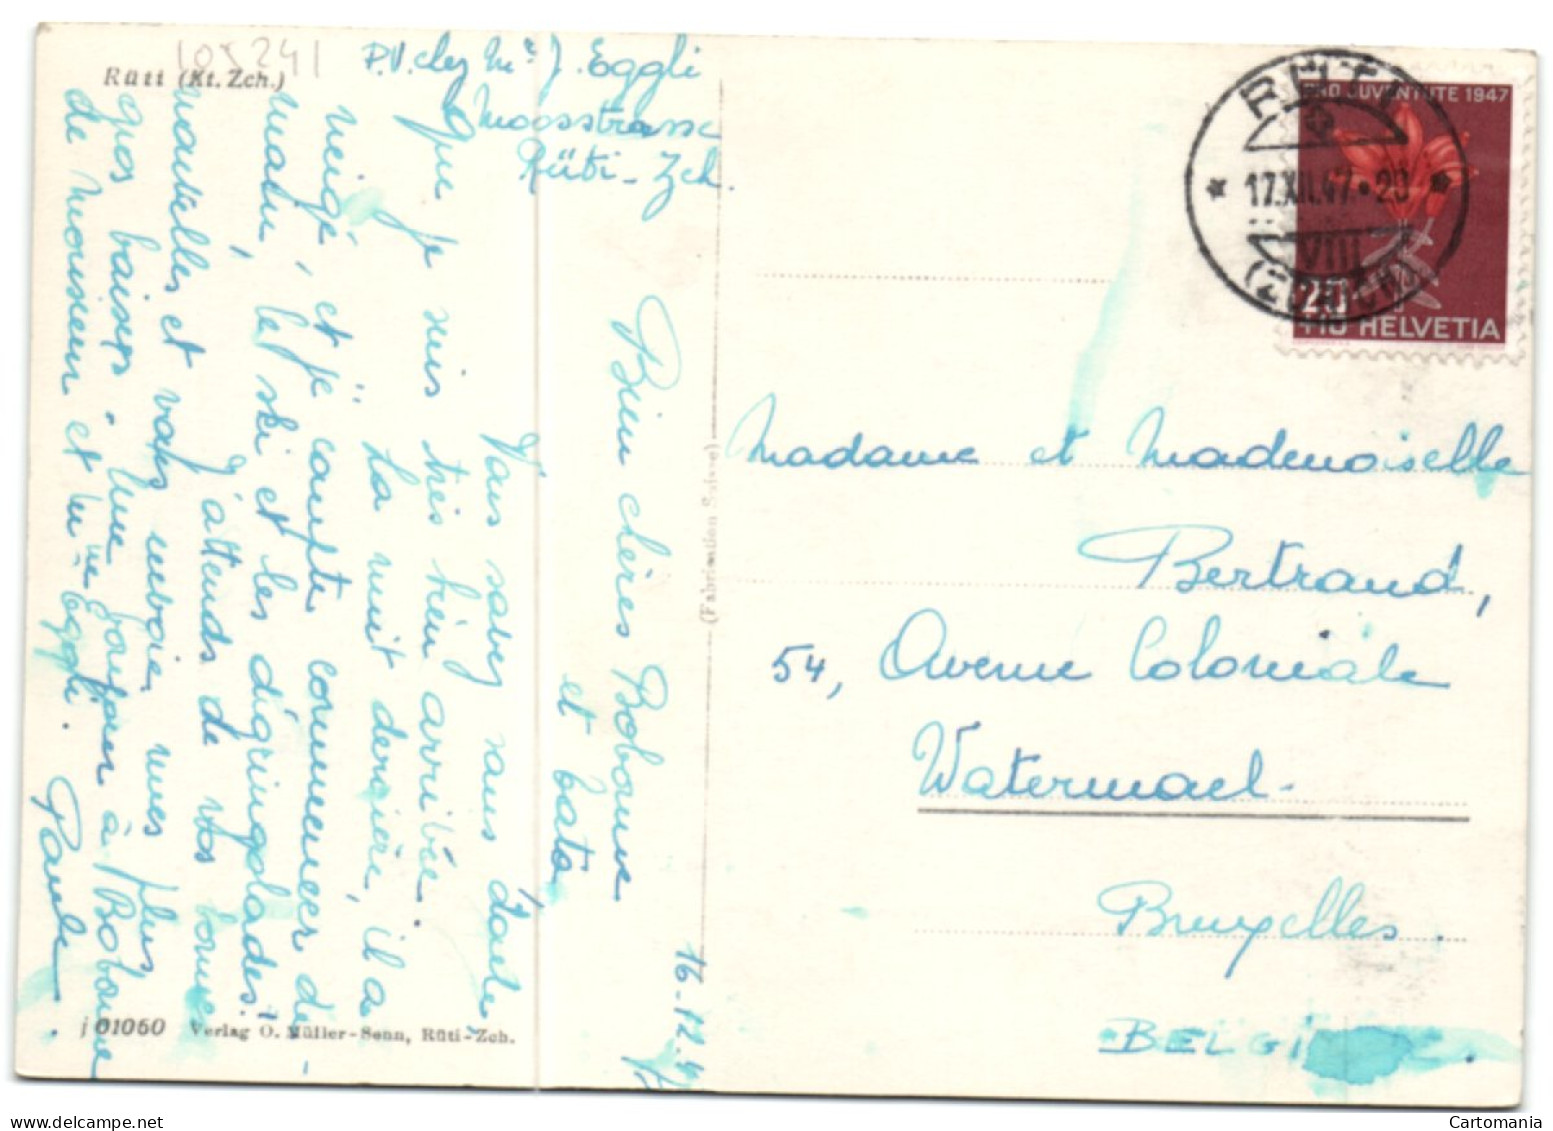 105241
Rüti (Kt. Zch.)
P.V. chez Mr J. Eggli
Moosstrasse
Rüti - Zch.
16.12.47
Bien chères Bobonne
et Cata
Vous savez sans doute
que je suis très bien arrivée.
La nuit dernière, il a
neigé, et je compte commencer de-
main, le ski et les dégringolades!
J'attends de vos bonnes
nouvelles et vous envoie mes plus
gros baisers. Une bonjour à Bobonne
de Monsieur et Mme Eggli.
Paule.
j 01060 Verlag O. Müller-Senn, Rüti-Zch.
(Fabrication Suisse)
RÜTI
17.XII.47.-20
VIII
(ZÜRICH)
PRO JUVENTUTE 1947
20
+10 HELVETIA
Madame et Mademoiselle
Bertrand,
54, Avenue Coloniale
Watermael-
Bruxelles.
BELGIQUE.
Cartomania